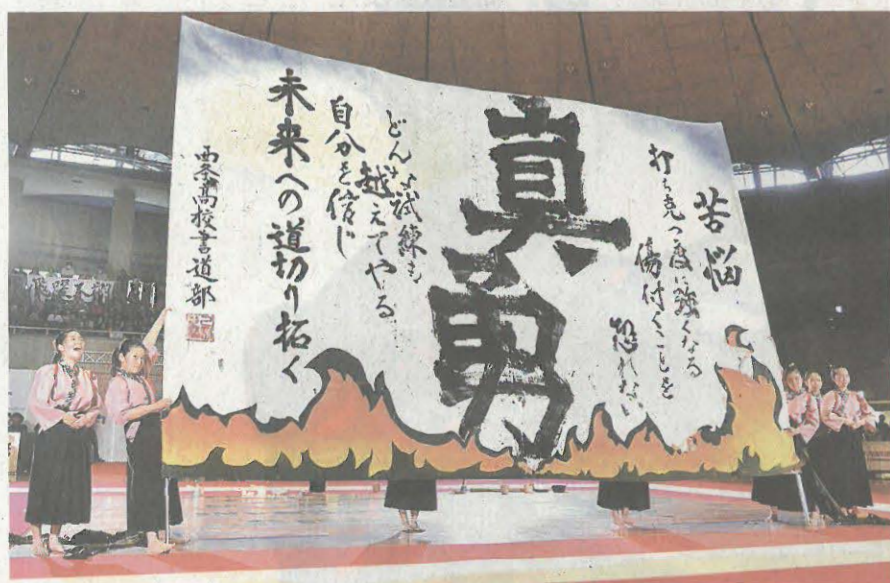 苦悩
打ち克つ度に強くなる
傷付くことを
恐れない
真勇
どんな試練も
越えてやる
自分を信じ
未来への道切り拓く
西条高校書道部